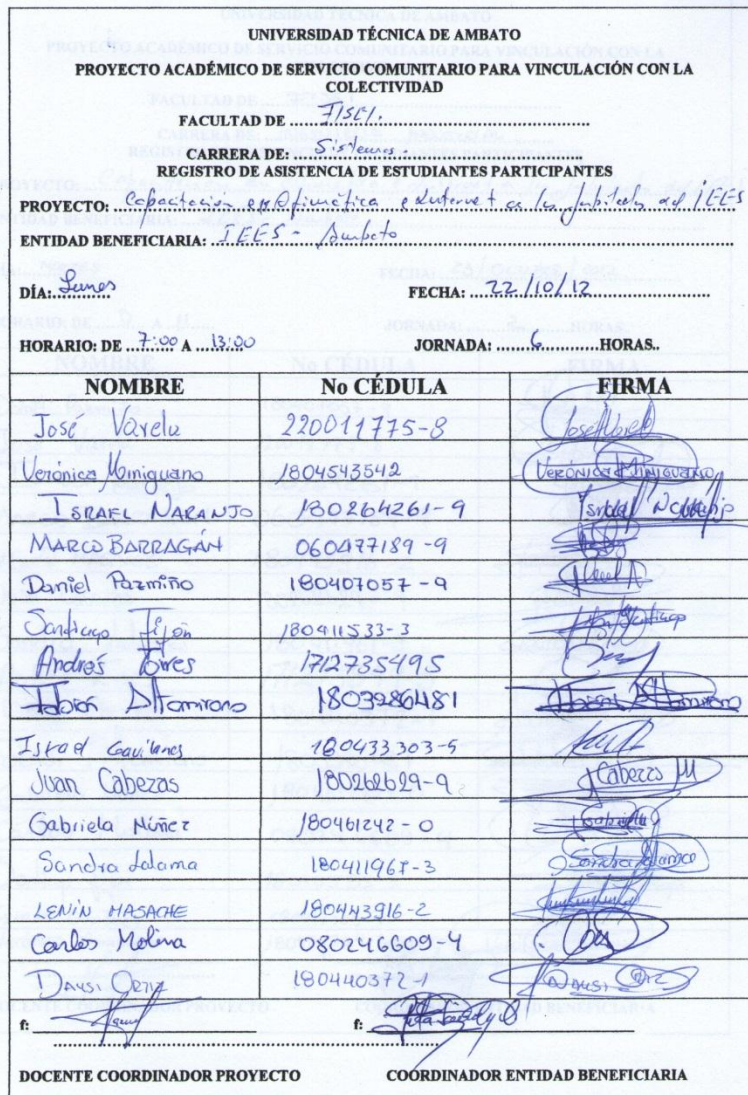 UNIVERSIDAD TÉCNICA DE AMBATO
PROYECTO ACADÉMICO DE SERVICIO COMUNITARIO PARA VINCULACIÓN CON LA
COLECTIVIDAD
FACULTAD DE FISEI.
CARRERA DE: Sistemas
REGISTRO DE ASISTENCIA DE ESTUDIANTES PARTICIPANTES
PROYECTO: Capacitación en Ofimática e Internet a los jubilados del IEES
ENTIDAD BENEFICIARIA: IEES - Ambato
DÍA: Lunes FECHA: 22/10/12
HORARIO: DE 7:00 A 13:00 JORNADA: 6 HORAS..
NOMBRE No CÉDULA FIRMA
José Varela 220011775-8 José Varel
Verónica Miniguano 1804543542 VERÓNICA MINIGUANO
ISRAEL NARANJO 180264261-9 Israel Naranjo
MARCO BARRAGÁN 060477189-9
Daniel Pazmiño 180407057-9
Santiago Tijón 180411533-3 Santiago
Andrés Torres 1712735495
Fabián Altamirano 1803986481 Altamirano
Israel Gavilanes 180433303-5
Juan Cabezas 180262629-9 Cabezas M
Gabriela Núñez 180461242-0 Gabriela
Sandra Jalama 18041196-3 Sandra
LENIN MASACHE 180443916-2
Carlos Molina 080246609-4
DAYSI ORTIZ 180440372-1 DAYSI ORTIZ
f: f:
DOCENTE COORDINADOR PROYECTO COORDINADOR ENTIDAD BENEFICIARIA